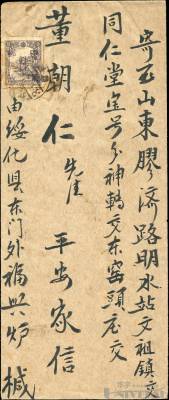 寄至山東膠濟路明水站文祖鎮交
同仁堂宝号分神轉交东窑頭庄交
董朝仁先生 平安家信
由绥化县东门外福兴炉槭